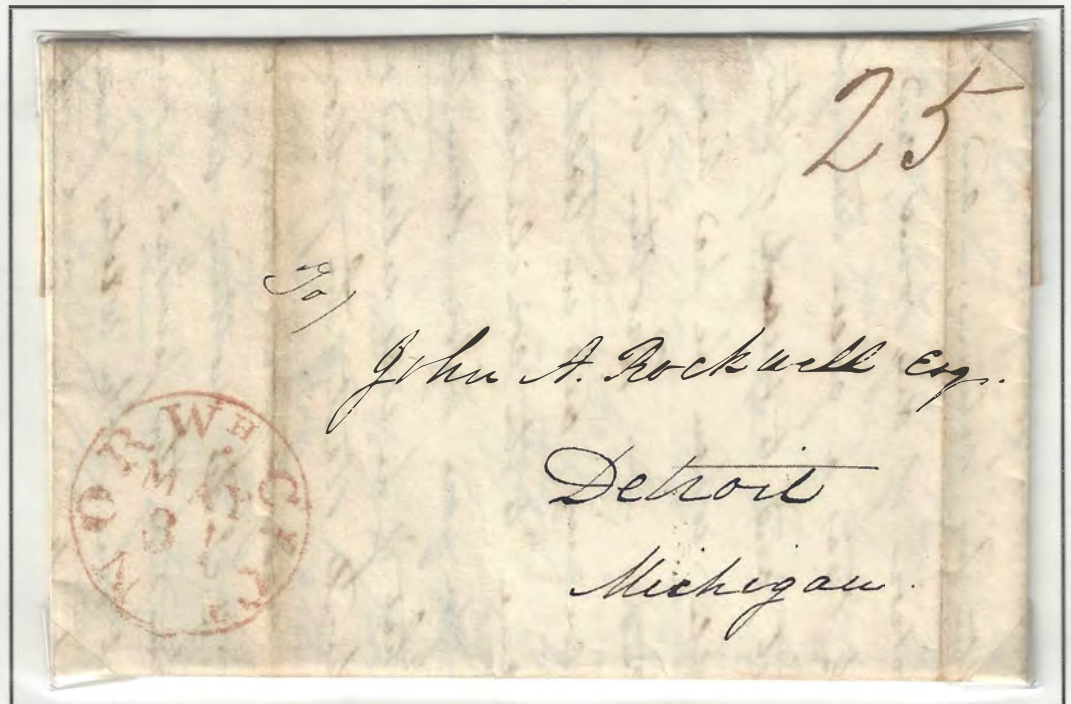 25
To)
John A. Rockwell Esq.
Detroit
Michigan.
NORWH CITY
MAY
31